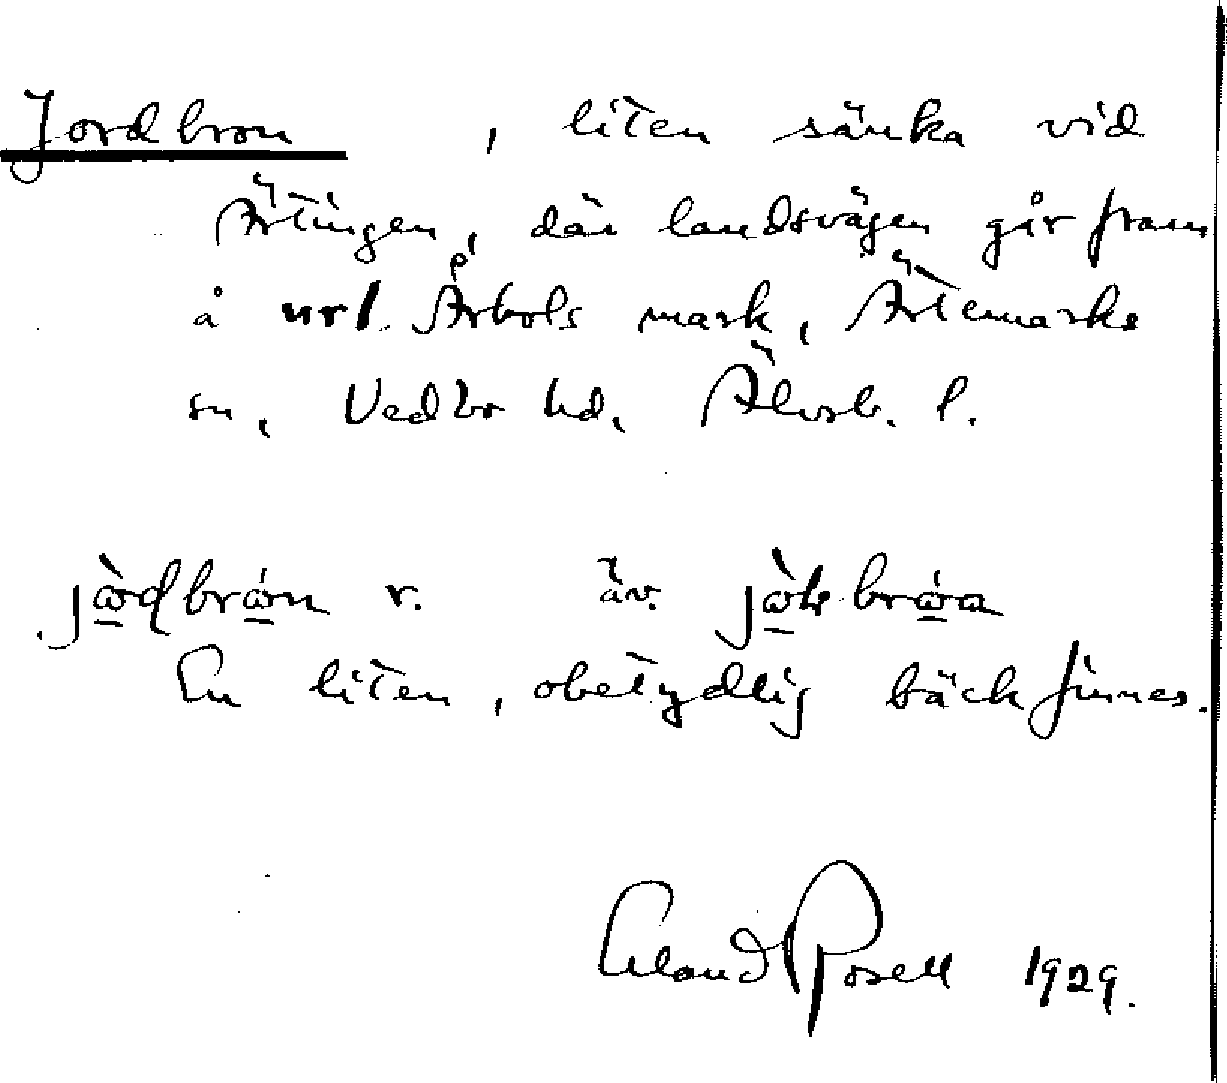 Jordbron, liten sänka vid
Ärtingen, där landsvägen går fram
å url. Årbols mark, Ärtemarks
sn, Vedbo hd, Älvsb. l.
r. äv.
En liten, obetydlig bäck finnes.
Erland Rosell 1929.